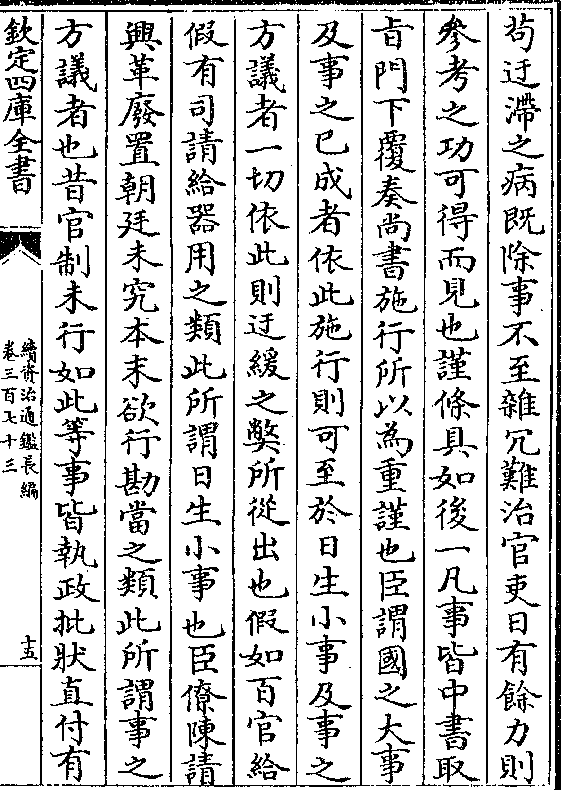 苟迂滯之病既除事不至雜冗難治官吏日有餘力則
參考之功可得而見也謹條具如後一凡事皆中書取
㫖門下覆奏尚書施行所以為重謹也臣謂國之大事
及事之已成者依此施行則可至於日生小事及事之
方議者一切依此則迂緩之弊所從出也假如百官給
假有司請給器用之類此所謂日生小事也臣僚陳請
興革廢置朝廷未究本末欲行勘當之類此所謂事之
方議者也昔官制未行如此等事皆執政批狀直付有
欽定四庫全書
續資治通鑑長編
卷三百七十三
十五